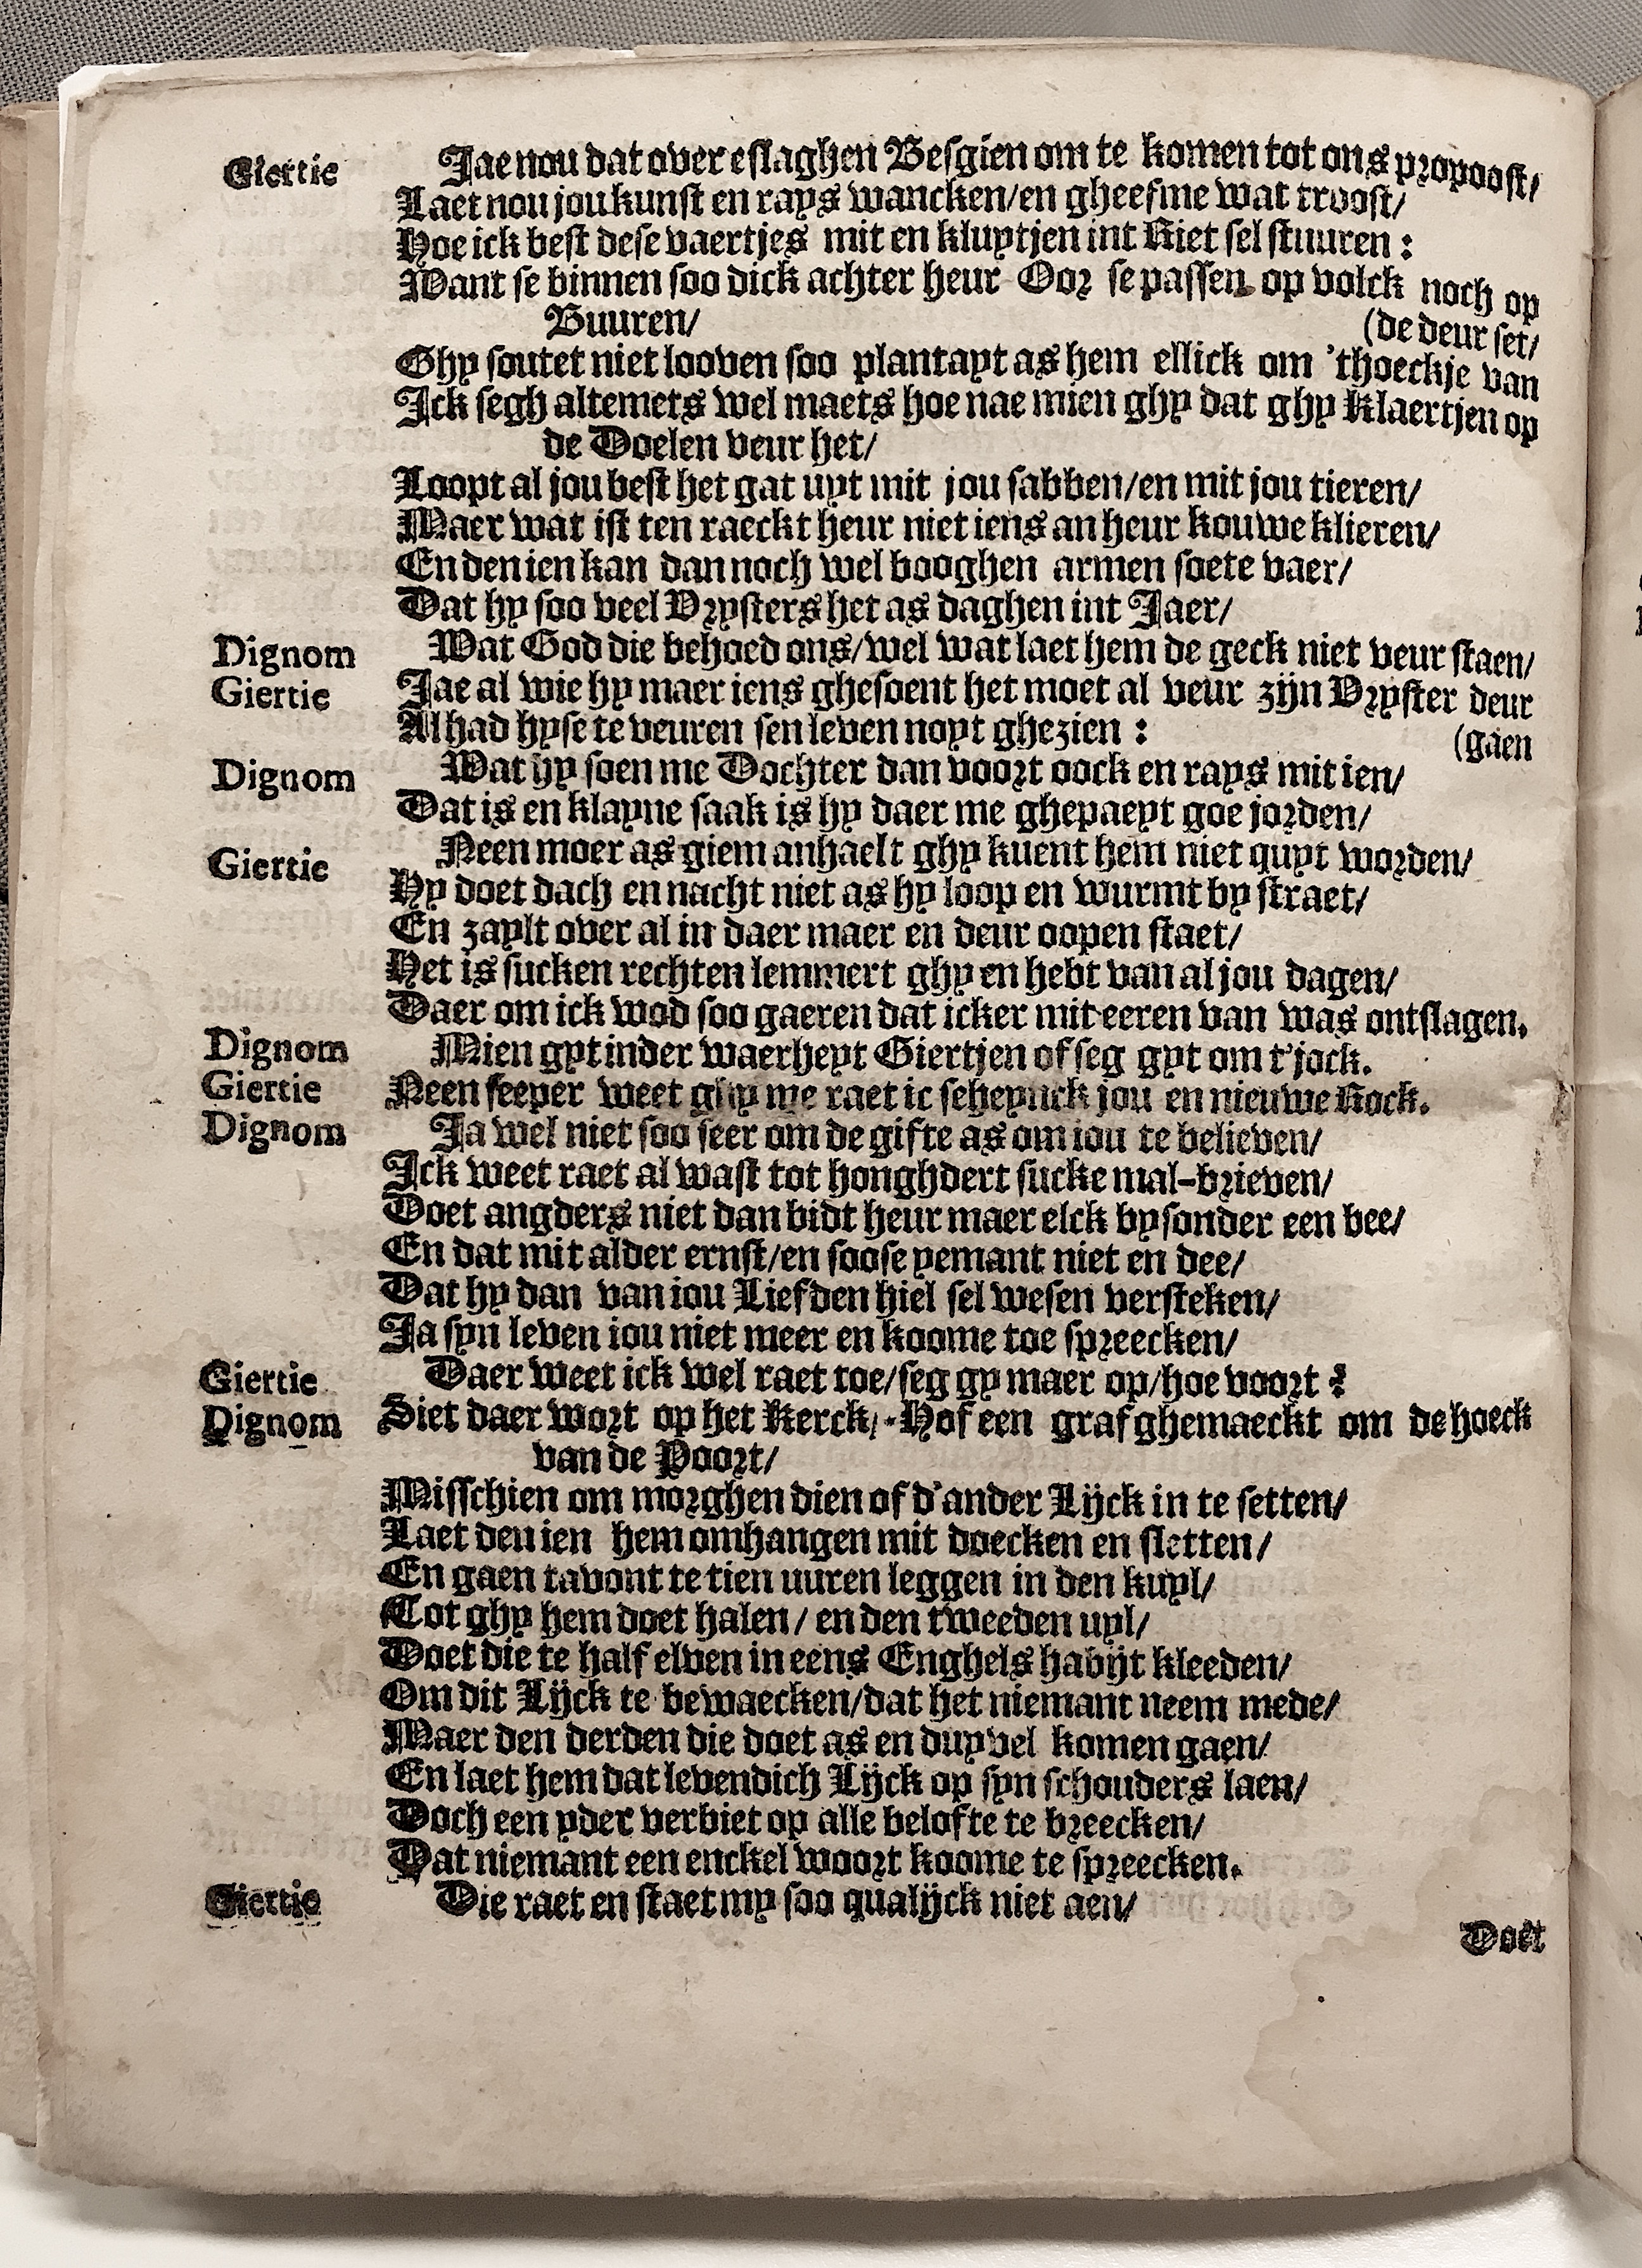 Giertie Jae nou dat over eslaghen Besgien om te komen tot ons propoost/
Laet nou jou kunst en rays wancken/en gheef me wat troost/
Hoe ick best dese vaertjes mit en kluytjen int Riet sel stuuren :
Want se binnen soo dick achter heur Oor se passen op volck noch op
Buuren/ (de deur set/
Ghy soutet niet looven soo plantayt as hem ellick om 'thoeckje van
Ick segh altemets wel maets hoe nae mien ghy dat ghy Klaertjen op
de Doelen veur het/
Loopt al jou best het gat uyt mit jou sabben/en mit jou tieren/
Maer wat ist ten raeckt heur niet iens an heur kouwe klieren/
En den ien kan dan noch wel booghen armen soete vaer/
Dat hy soo veel Vrysters het as daghen int Jaer/
Dignom Wat God die behoed ons/wel wat laet hem de geck niet veur staen/
Giertie Jae al wie hy maer iens ghesoent het moet al veur zijn Vryster deur
Al had hyse te veuren sen leven noyt ghezien : (gaen
Dignom Wat hy soen me Dochter dan voort oock en rays mit ien/
Dat is en klayne saak is hy daer me ghepaeyt goe jorden/
Giertie Neen moer as giem anhaelt ghy kuent hem niet quyt worden/
Hy doet dach en nacht niet as hy loop en wurmt by straet/
En zaylt over al in daer maer en deur oopen staet/
Het is sucken rechten lemmert ghy en hebt van al jou dagen/
Daer om ick wod soo gaeren dat icker mit eeren van was ontslagen.
Dignom Mien gyt inder waerheyt Giertjen of seg gyt om t'jock.
Giertie Neen seeper weet ghy me raet ic scheynck jou en nieuwe Rock.
Dignom Ja wel niet soo seer om de gifte as om iou te believen/
Ick weet raet al wast tot honghdert sucke mal-brieven/
Doet angders niet dan bidt heur maer elck bysonder een bee/
En dat mit alder ernst/en soose yemant niet en dee/
Dat hy dan van iou Liefden hiel sel wesen versteken/
Ja syn leven iou niet meer en koome toe spreecken/
Giertie Daer weet ick wel raet toe/seg gy maer op/hoe voort ?
Dignom Siet daer wort op het Kerck/-Hof een graf ghemaeckt om de hoeck
van de Poort/
Misschien om morghen dien of d'ander Lijck in te setten/
Laet den ien hem omhangen mit doecken en sletten/
En gaen tavont te tien uuren leggen in den kuyl/
Tot ghy hem doet halen/ en den tweeden uyl/
Doet die te half elven in eens Enghels habijt kleeden/
Om dit Lijck te bewaecken/dat het niemant neem mede/
Maer den derden die doet as en duyvel komen gaen/
En laet hem dat levendich Lijck op syn schouders laen/
Doch een yder verbiet op alle belofte te breecken/
Dat niemant een enckel woort koome te spreecken.
Giertie Die raet en staet my soo qualijck niet aen/
Doet